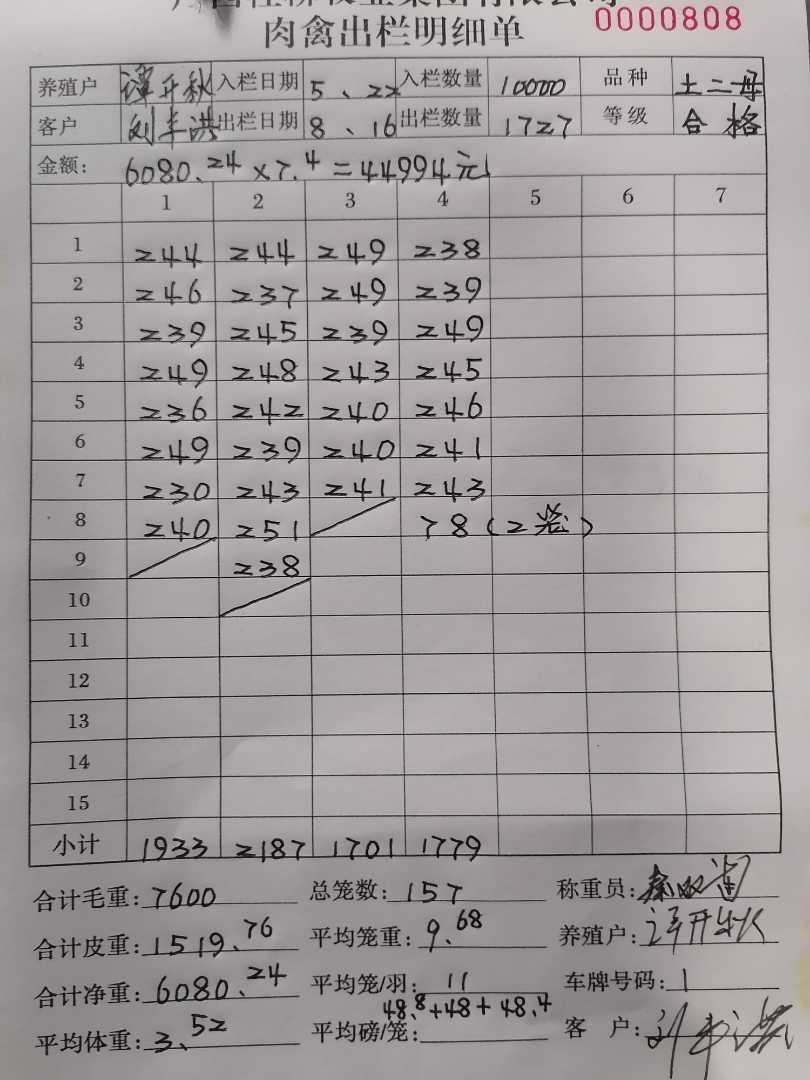 肉禽出栏明细单 0000808
养殖户 谭开秋 入栏日期 5、22 入栏数量 10000 品种 土二母
客户 刘丰洪 出栏日期 8、16 出栏数量 1727 等级 合格
金额: 6080.24×7.4=44994元
1 2 3 4 5 6 7
1 244 244 249 238
2 246 237 249 239
3 239 245 239 249
4 249 248 243 245
5 236 242 240 246
6 249 239 240 241
7 230 243 241 243
8 240 251 78(2笼)
9 238
10
11
12
13
14
15
小计 1933 2187 1701 1779
合计毛重: 7600 总笼数: 157 称重员:
合计皮重: 1519.76 平均笼重: 9.68 养殖户: 谭开秋
合计净重: 6080.24 平均笼/羽: 11 车牌号码: 1
平均体重: 3.52 平均磅/笼: 48.8+48+48.4 客户: